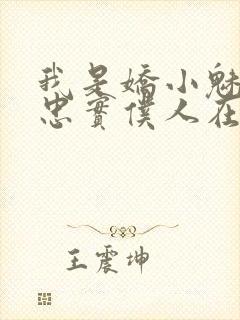 我是嬌小魅
忠實僕人在
王震坤